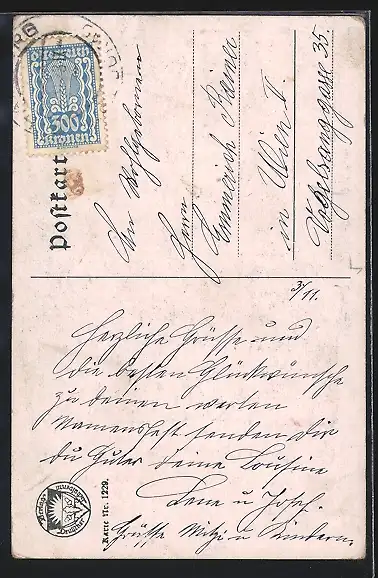 Österreich
300
Kronen
Postkart
Herrn
Emmerich
in Wien I
Vogelsanggasse 35
3/11.
Herzliche Grüsse und
die besten Glückwünsche
zu deinem werten
Namensfest senden Dir
du Guter deine Cousine
Lene u Josef.
Grüsse Mitzi u Kindern
Karte Nr. 1229.